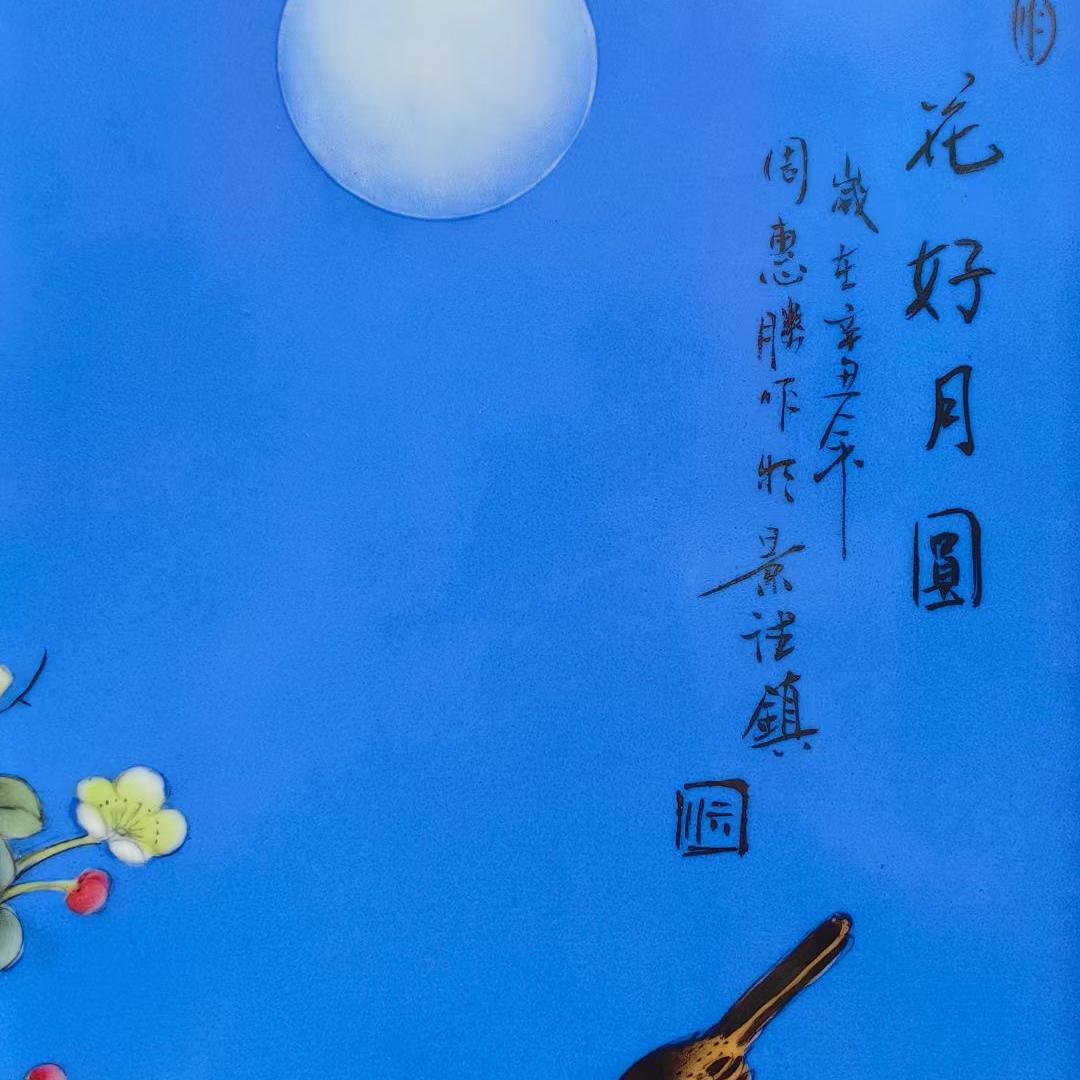 花好月圓
歲在辛丑年
周惠勝作於景德鎮